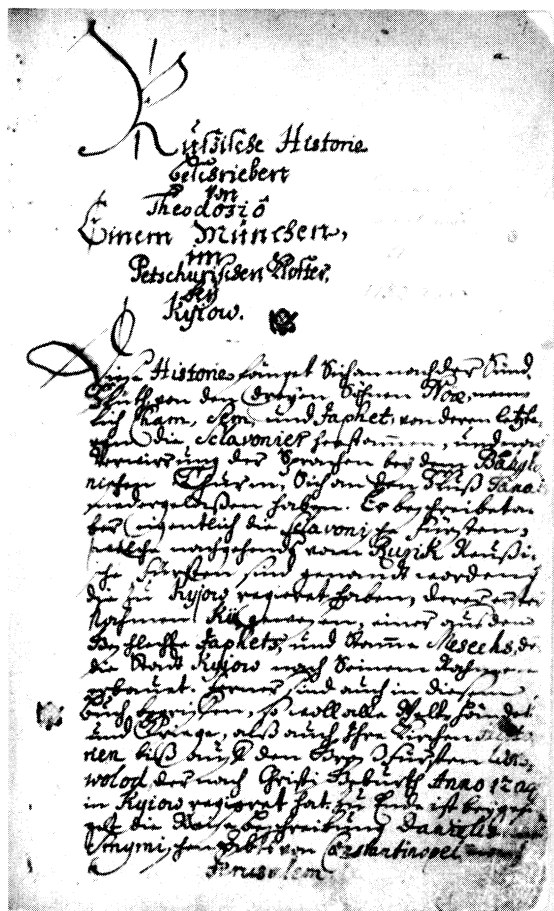 Rußische Historie
Geschrieben
von
Theodosiô
Einem München,
im
Petschurischen Kloster,
bey
Kyiow.
Diese Historie fänget Sich an nach der Sünd-
fluth von den dreyen Söhnen Noæ, nem̄-
lich Cham, Sem, und Japhet, von deren letzte-
ren die Sclavonier herstammen, und nach
Verwirrung der Sprachen bey dem Babylo-
nischen Thurm, Sich an den Fluß Tanai
niedergelaßen haben. Er beschreibet a-
ber eigentlich die Sclavonische Fürsten,
welche nachgehends vom Rurik Reußi-
sche Fürsten sind genandt worden,
die zu Kyiow regieret haben, deren erster
Nahmen Kii gewesen, einer aus dem
Geschlechte Japhets, und Stam̄e Mesechs, der
die Stadt Kyiow nach Seinem Nahmen
gebauet. Ferner sind auch in diesem
Buch begriffen, so woll alle Welt-Händel
und Kriege, alß auch Ihre Kirchen
rien biß auf den Groß-Fürsten
wolod, der nach Christi Geburth Anno
in Kyiow regieret hat. zu Ende ist beygefü-
get die Reise-Beschreibung Danielis
von Constantinopel
Jerusalem